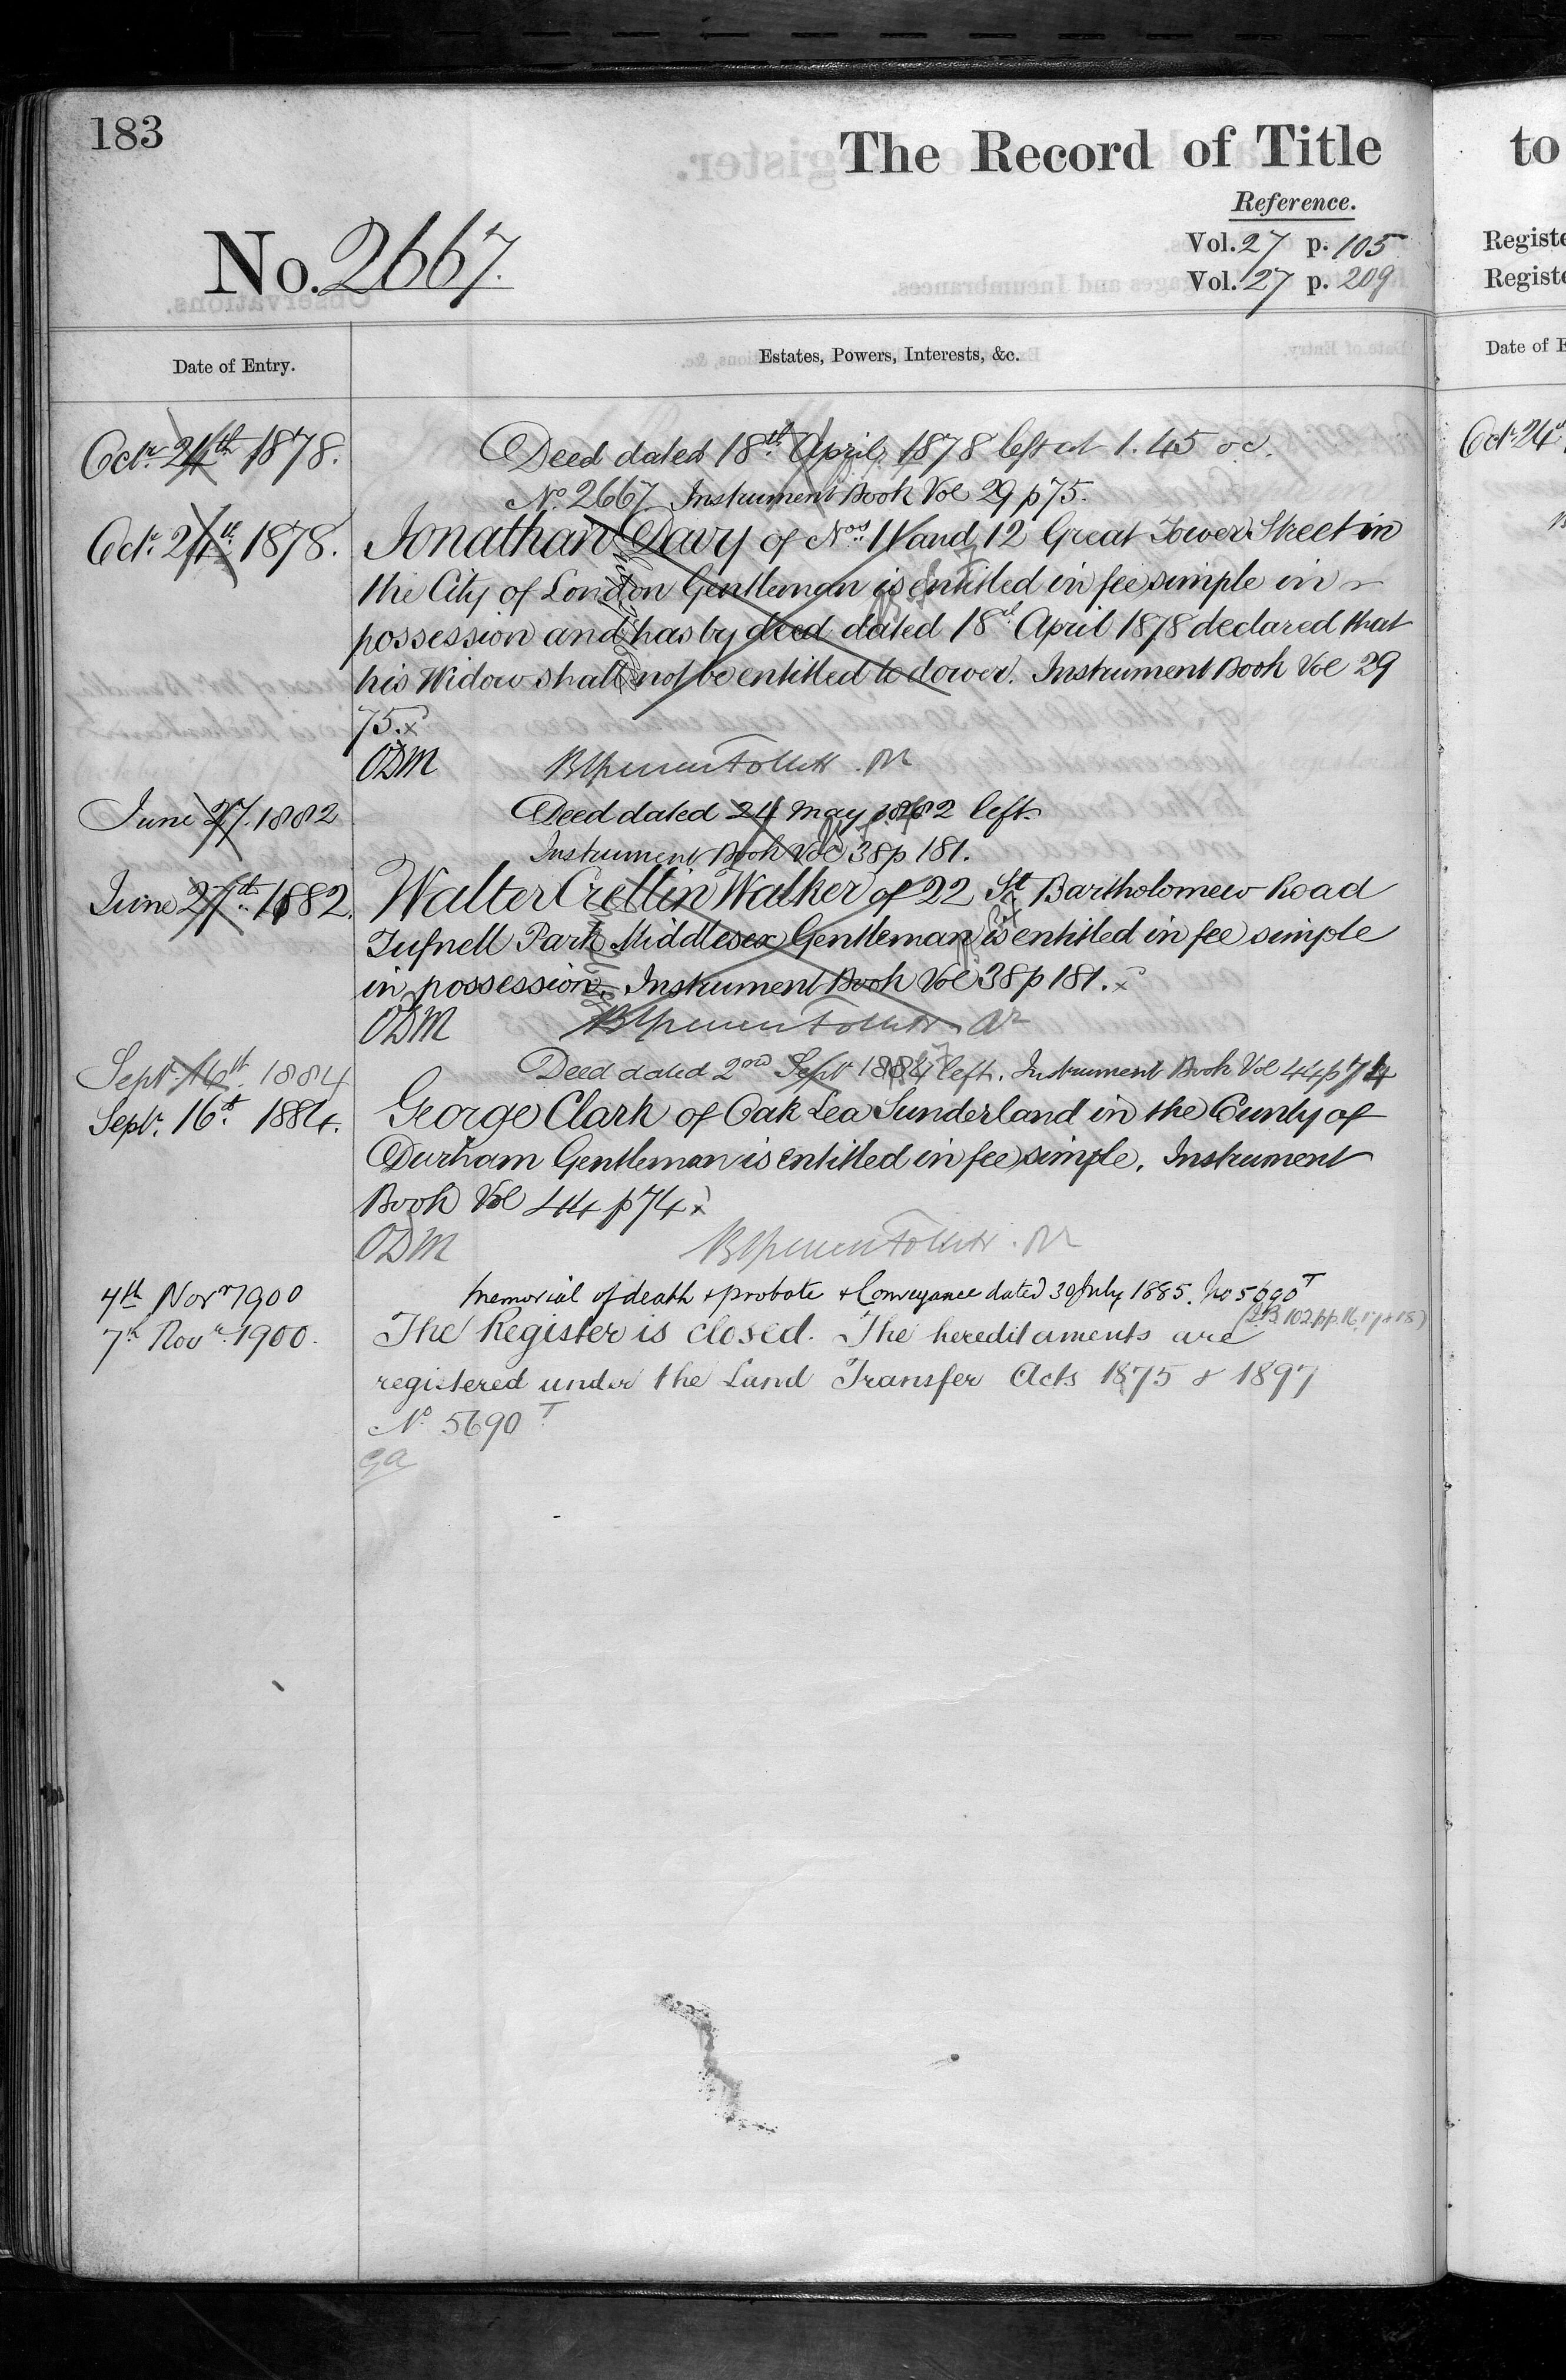 183
The Record of Title
to
Reference.
No. 2667.
Vol. 27 p. 105
Vol. 27 p. 209
Registe
Registe
Date of Entry.
Estates, Powers, Interests, &c.
Date of E
Octr. 24th 1878. Deed dated 18th April 1878 left at 1.45 oc.
Oct. 24
No. 2667 Instrument Book Vol 29 p 75.
Oct. 24th 1878. Jonathan Davy of Nos. 11 and 12 Great Tower Street in
the City of London Gentleman is entitled in fee simple in
possession and has by deed dated 18th April 1878 declared that
his Widow shall not be entitled to dower. Instrument Book Vol 29
75. x
ODM
June 27. 1882 Deed dated 24 May 1882 left.
Instrument Book Vol 38 p 181.
June 27th 1882. Walter Crellin Walker of 22 St Bartholomew Road
Tufnell Park Middlesex Gentleman is entitled in fee simple
in possession. Instrument Book Vol 38 p 181. x
ODM
Sept. 16th. 1884 Deed dated 2nd Sept 1884 left. Instrument Book Vol 44 p 74
Sept. 16th 1884. George Clark of Oak Lea Sunderland in the Cunty of
Durham Gentleman is entitled in fee simple. Instrument
Book Vol 44 p 74 x
ODM
4th Novr 1900 Memorial of death & probate & Conveyance dated 30 July 1885. No 5690 T
7th Novr. 1900. The Register is closed. The hereditaments are
registered under the Land Transfer Acts 1875 & 1897
No 5690 T